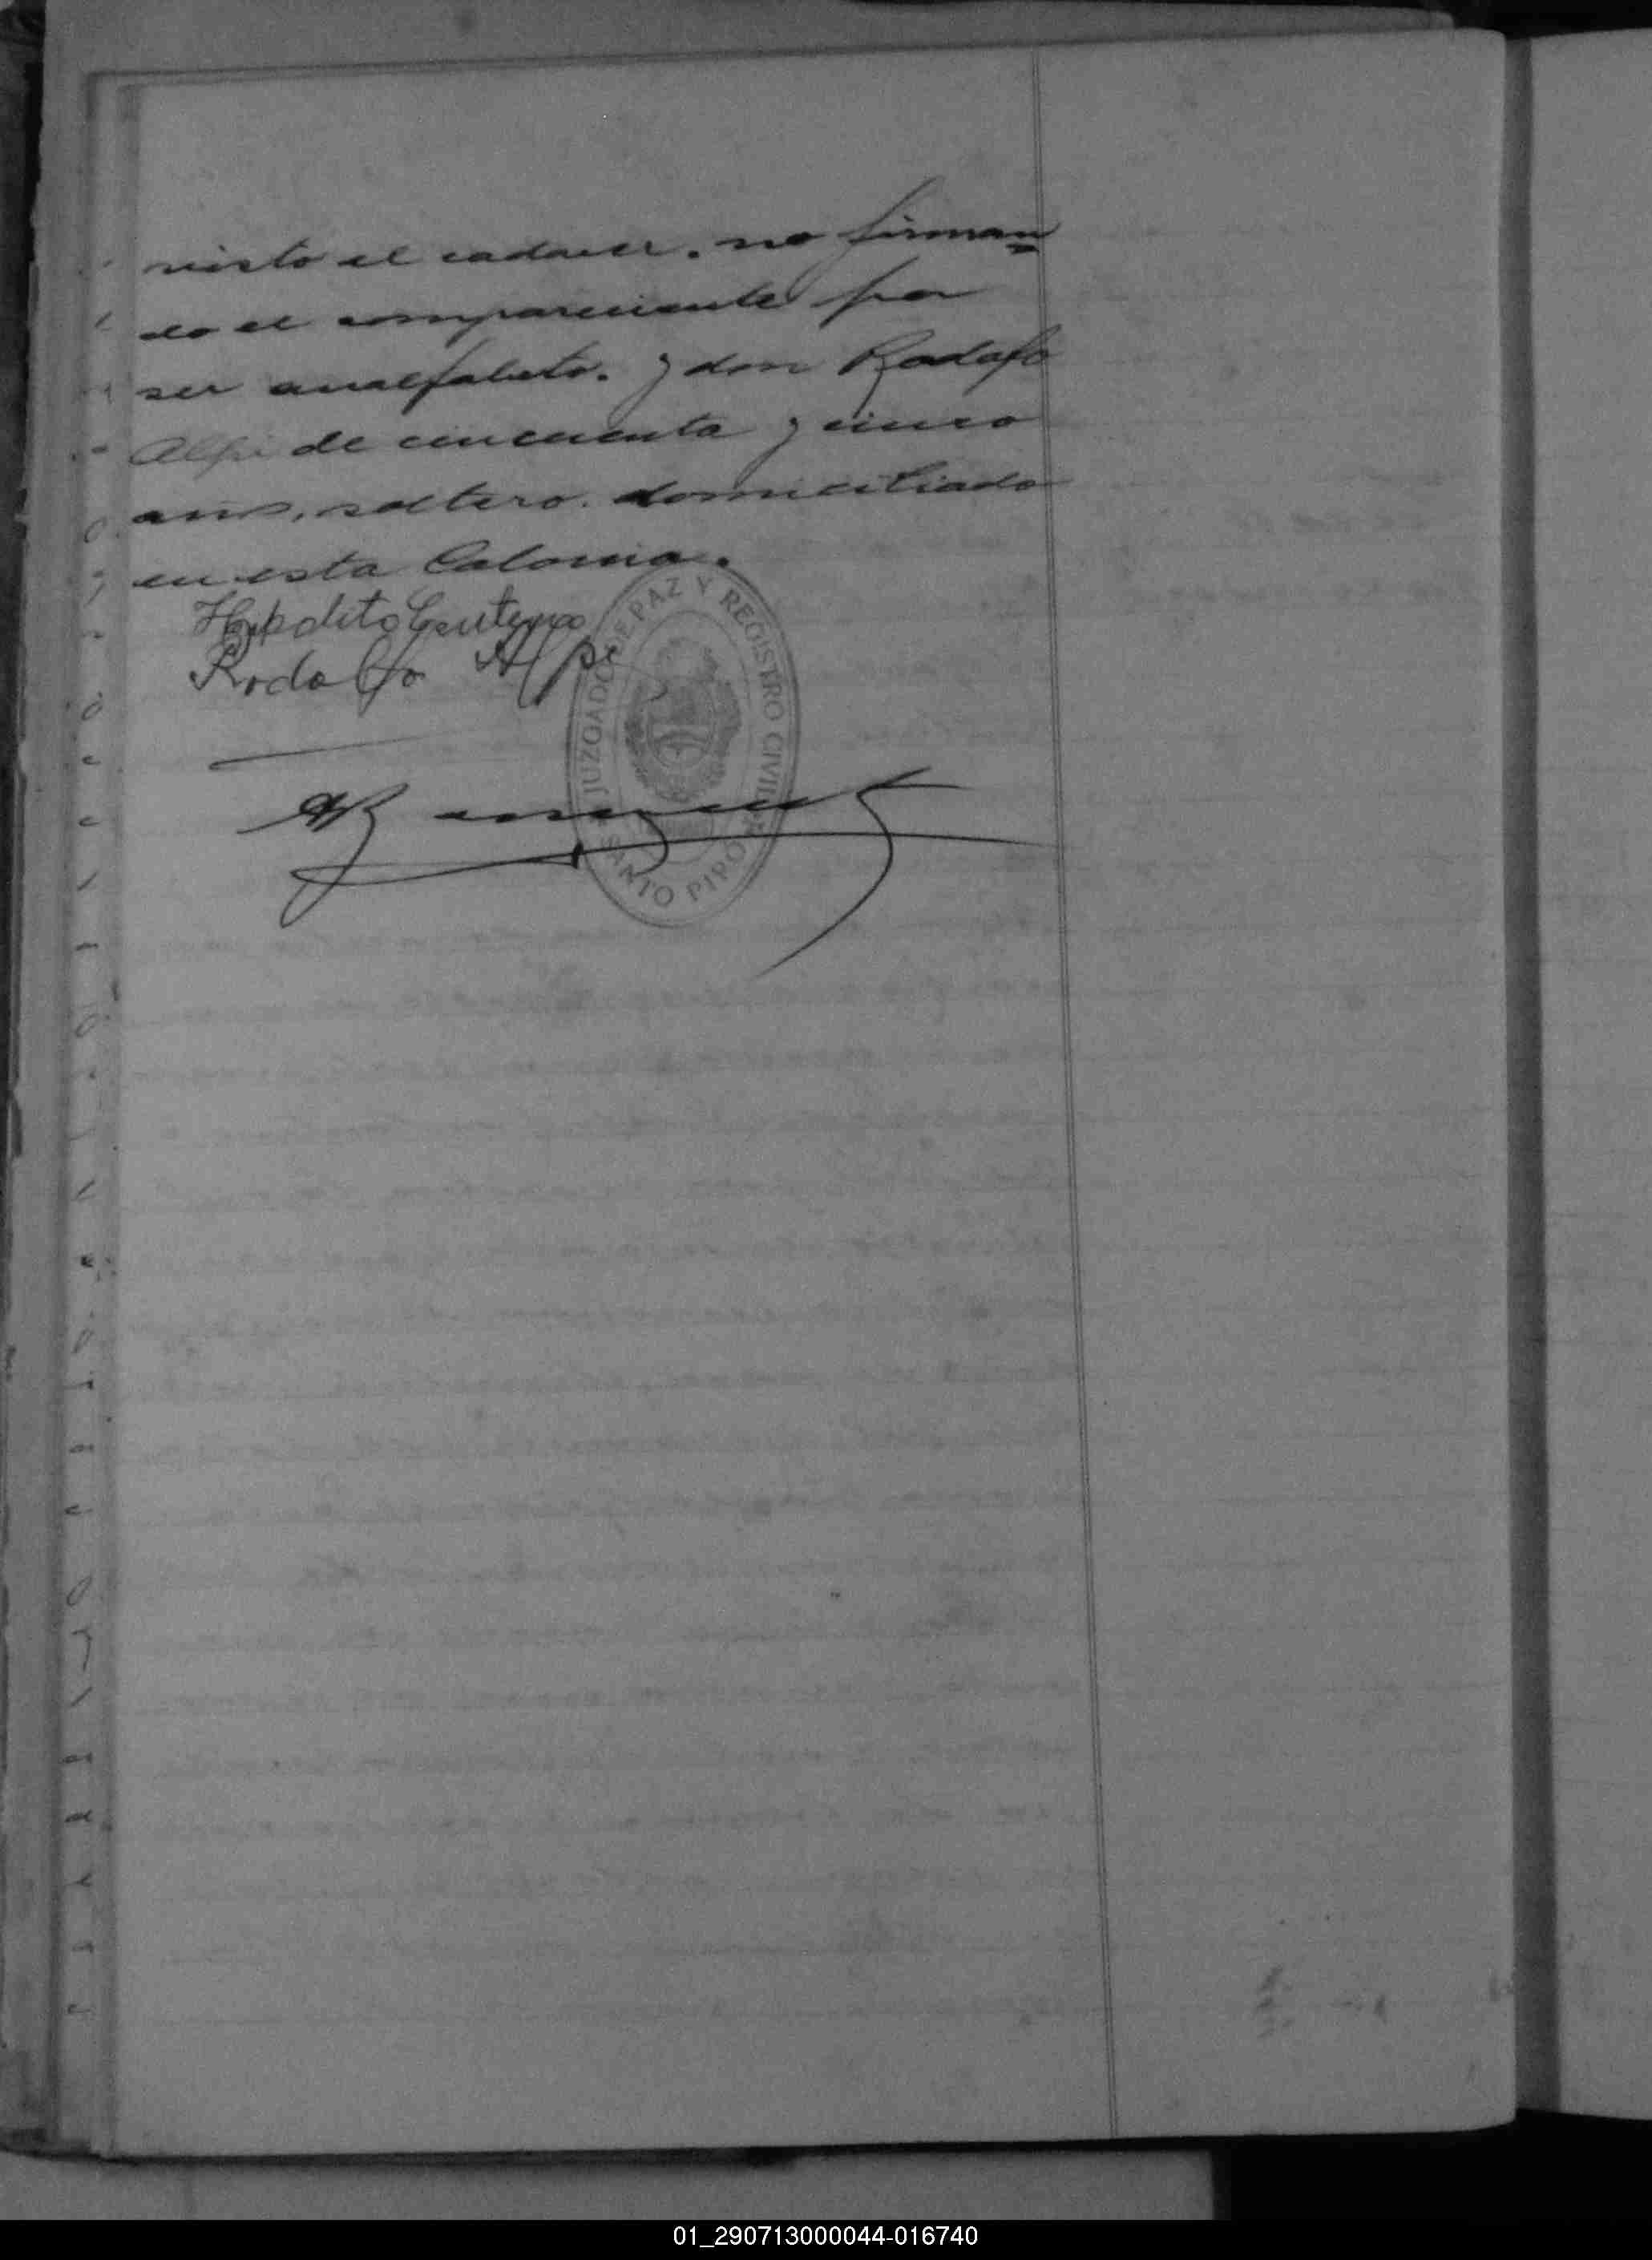 visto el cadaver. no firman
do el compareciente por
ser analfabeto. y don Rodolfo
Alpi de cincuenta y cinco
años, soltero. domiciliado
en esta Colonia.
Hipolito Centeno
Rodolfo Alpi
JUZGADO DE PAZ Y REGISTRO CIVIL
SANTO PIPO
01_290713000044-016740